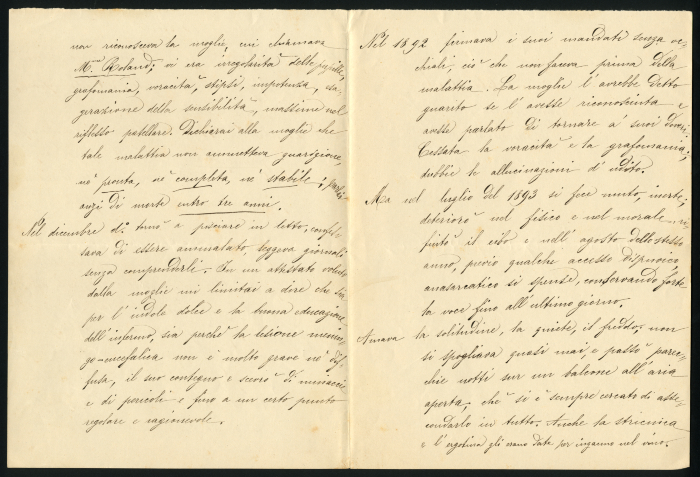 non riconosceva la moglie, cui chiamava
M.me Roland; vi era irregolarità delle pupille,
grafomania, voracità, stipsi, impotenza, esa-
gerazione della sensibilità, massime nel
riflesso patellare. Dichiarai alla moglie che
tale malattia non ammetteva guarigione,
nè pronta, nè completa, nè stabile; parlai
anzi di morte entro tre anni.
Nel dicembre d.o tornò a pisciare in letto, confes-
sava di essere ammalato, leggeva giornali
senza comprenderli. In un attestato voluto
dalla moglie mi limitai a dire che sia
per l'indole dolce e la buona educazione
dell'infermo, sia perchè la lesione menin-
go-encefalica non è molto grave nè dif-
fusa, il suo contegno è scevro di minaccie
e di pericoli e fino a un certo punto
regolare e ragionevole.
Nel 1892 firmava i suoi mandati senza oc-
chiali ciò che non faceva prima della
malattia. La moglie l'avrebbe detto
guarito se l'avesse riconosciuta e
avesse parlato di tornare a' suoi doveri.
Cessata la voracità e la grafomania;
dubbie le allucinazioni d'udito.
Ma nel luglio del 1893 si fece muto, inerte,
deteriorò nel fisico e nel morale, ri-
fiutò il cibo e nell'agosto dello stesso
anno, previo qualche accesso dispnoico,
anasarcatico si spense, conservando forte
la voce fino all'ultimo giorno.
Amava la solitudine, la quiete, il freddo, non
si spogliava quasi mai, e passò parec-
chie notti sur un balcone all'aria
aperta, chè si è sempre cercato di asse-
condarlo in tutto. Anche la stricnina
e l'ergotina gli erano date per inganno nel vino.